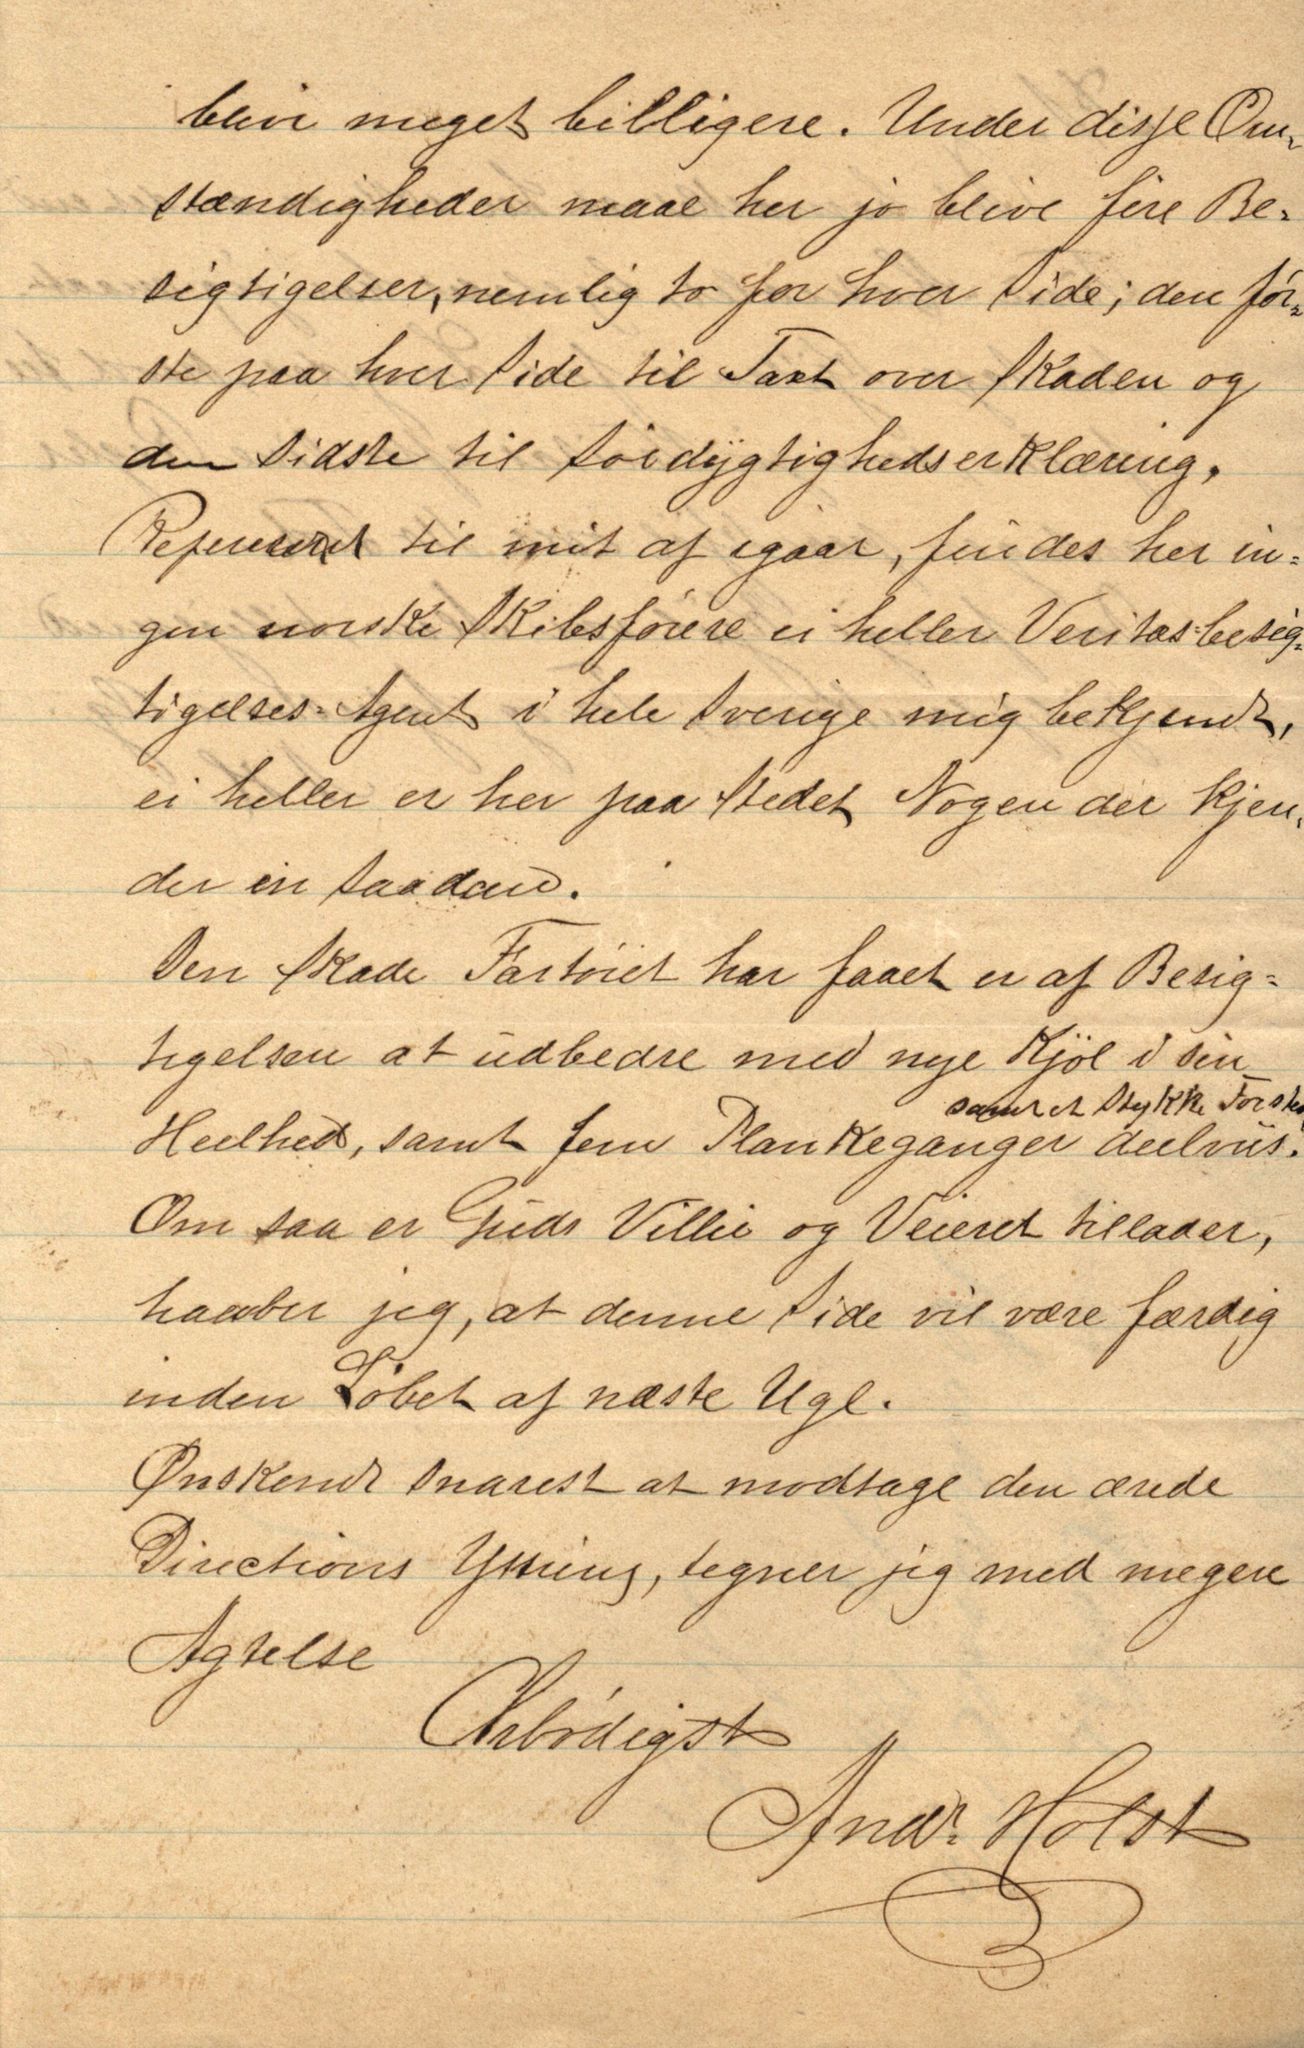 blive meget billigere. Under disse Om-
stændigheder maae her jo blive fire Be-
sigtigelser, nemlig to for hver Side; den før-
ste paa hver Side til Taxt over Skaden og
den sidste til Södygtighedserklæring.
Refererend til mit af igaar, findes her in-
gen norske Skibsförere ei heller Veritas-besig-
tigelses-Agent i hele Sverige mig bekjendt,
ei heller er her paa Stedet Nogen der kjen-
der en saadan.
Den Skade Fartöiet har faaet er af Besig-
tigelsen at udbedre med nye Kjöl i sin
samt et Stykke Forstev
Heelhed, samt fem Plankeganger deelviis.
Om saa er Guds Villie og Veieret tillader,
haaber jeg, at denne Side vil være færdig
inden Löbet af næste Uge.
Ønskende snarest at modtage den ærede
Directions Yttring, tegner jeg med megen
Agtelse
Ærbödigst
Andr. Holst